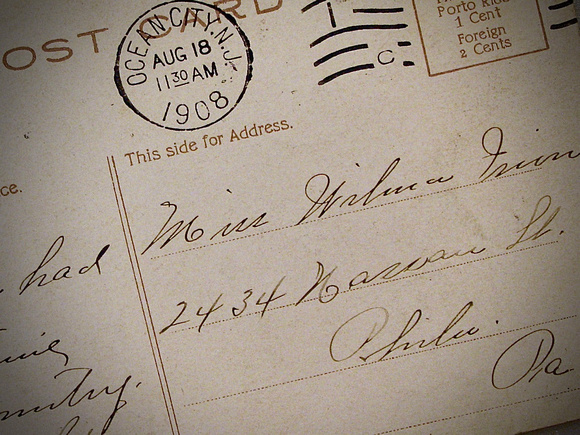 POST CARD
OCEAN CITY, N.J.
AUG 18
11 30 AM
1908
C
Porto Rico
1 Cent
Foreign
2 Cents
This side for Address.
ce.
Miss Wilma
had
2434 Nassau St.
Phila.
Pa